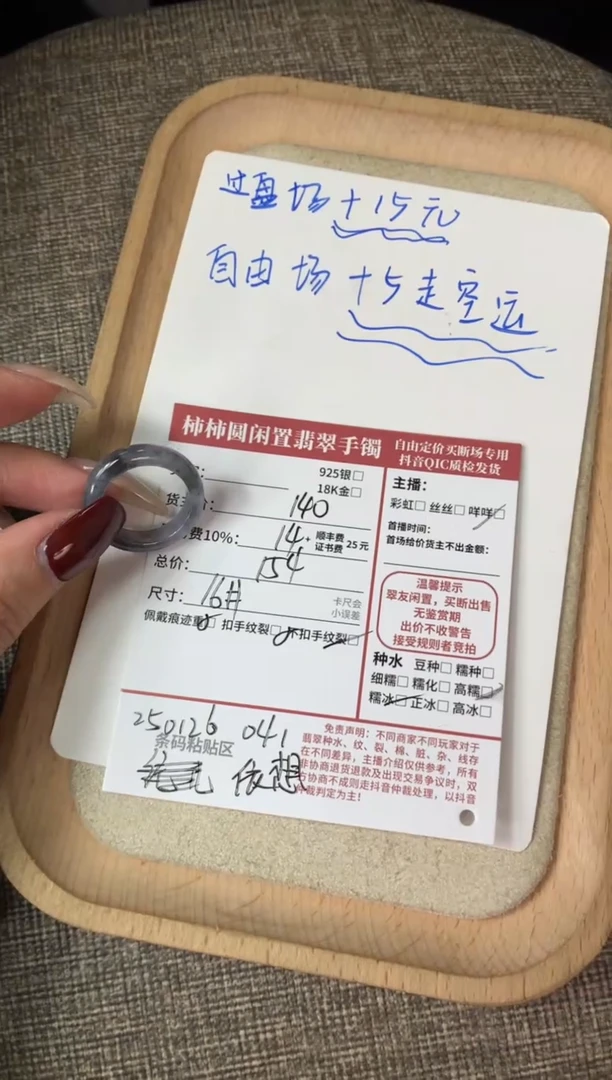 过盘场+15元
自由场+5走空运
柿柿圆闲置翡翠手镯
自由定价买断场专用
抖音QIC质检发货
925银□
18K金□
货主价: 140
费10%: 14+ 顺丰费 证书费 25元
总价: 154
尺寸: 16# 卡尺会小误差
佩戴痕迹重□ 扣手纹裂□ 不扣手纹裂□
主播:
彩虹□ 丝丝□ 咩咩□
首播时间:
首场给价货主不出金额:
温馨提示
翠友闲置,买断出售
无鉴赏期
出价不收警告
接受规则者竞拍
种水 豆种□ 糯种□
细糯□ 糯化□ 高糯□
糯冰□ 正冰□ 高冰□
250126 041
条码粘贴区
依想
免责声明:不同商家不同玩家对于
翡翠种水、纹、裂、棉、脏、杂、线存
在不同差异,主播介绍仅供参考,所有
非协商退货退款及出现交易争议时,双
方协商不成则走抖音仲裁处理,以抖音
仲裁判定为主!